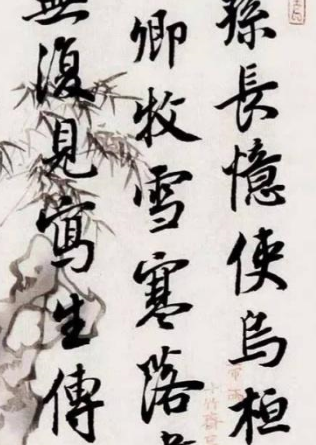 孫長憶使烏桓
卿牧雪寒落
無復見寫生傳